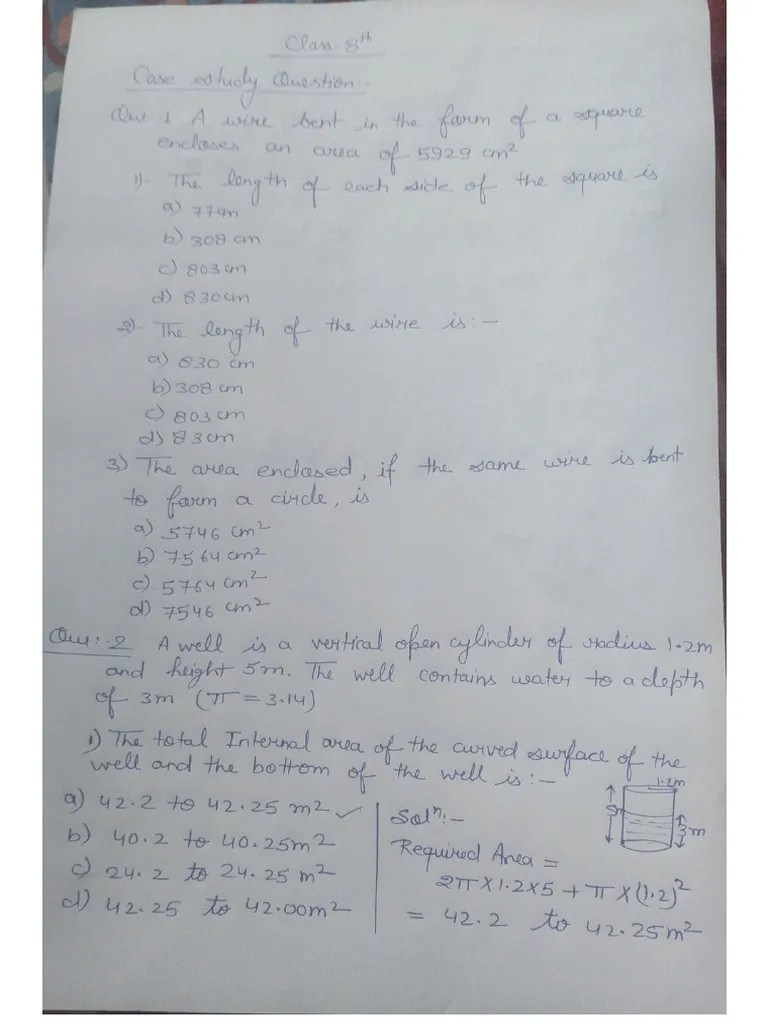 Class-8th
Case study Question:-
Que 1 A wire bent in the form of a square
encloses an area of 5929 cm²
1)- The length of each side of the square is
a) 77cm
b) 308 cm
c) 803 cm
d) 830 cm
2)- The length of the wire is:-
a) 830 cm
b) 308 cm
c) 803 cm
d) 83 cm
3) The area enclosed, if the same wire is bent
to form a circle, is
a) 5746 cm²
b) 7564 cm²
c) 5764 cm²
d) 7546 cm²
Que:-2 A well is a vertical open cylinder of radius 1.2m
and height 5m. The well contains water to a depth
of 3m (π = 3.14)
1) The total Internal area of the curved surface of the
well and the bottom of the well is:-
a) 42.2 to 42.25 m² ✓
b) 40.2 to 40.25m²
c) 24.2 to 24.25 m²
d) 42.25 to 42.00m²
Solⁿ:-
1.2m
5m
3m
Required Area =
2π×1.2×5 + π×(1.2)²
= 42.2 to 42.25m²